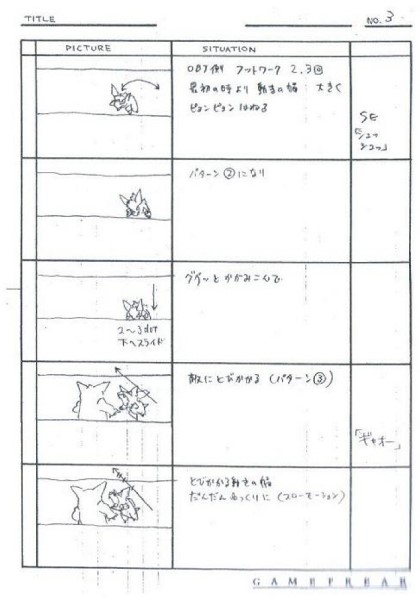 TITLE
NO. 3
PICTURE
SITUATION
OBJ側 フットワーク 2.3回
最初の時より 動きの幅 大きく
ピョンピョン はねる
SE
「シュッ
シュッ」
パターン②になり
ググッと かがみこんで
2〜3dot
下へスライド
敵にとびかかる (パターン③)
「ギャオー」
とびかかる動きの幅
だんだんゆっくりに (スローモーション)
GAMEFREAK